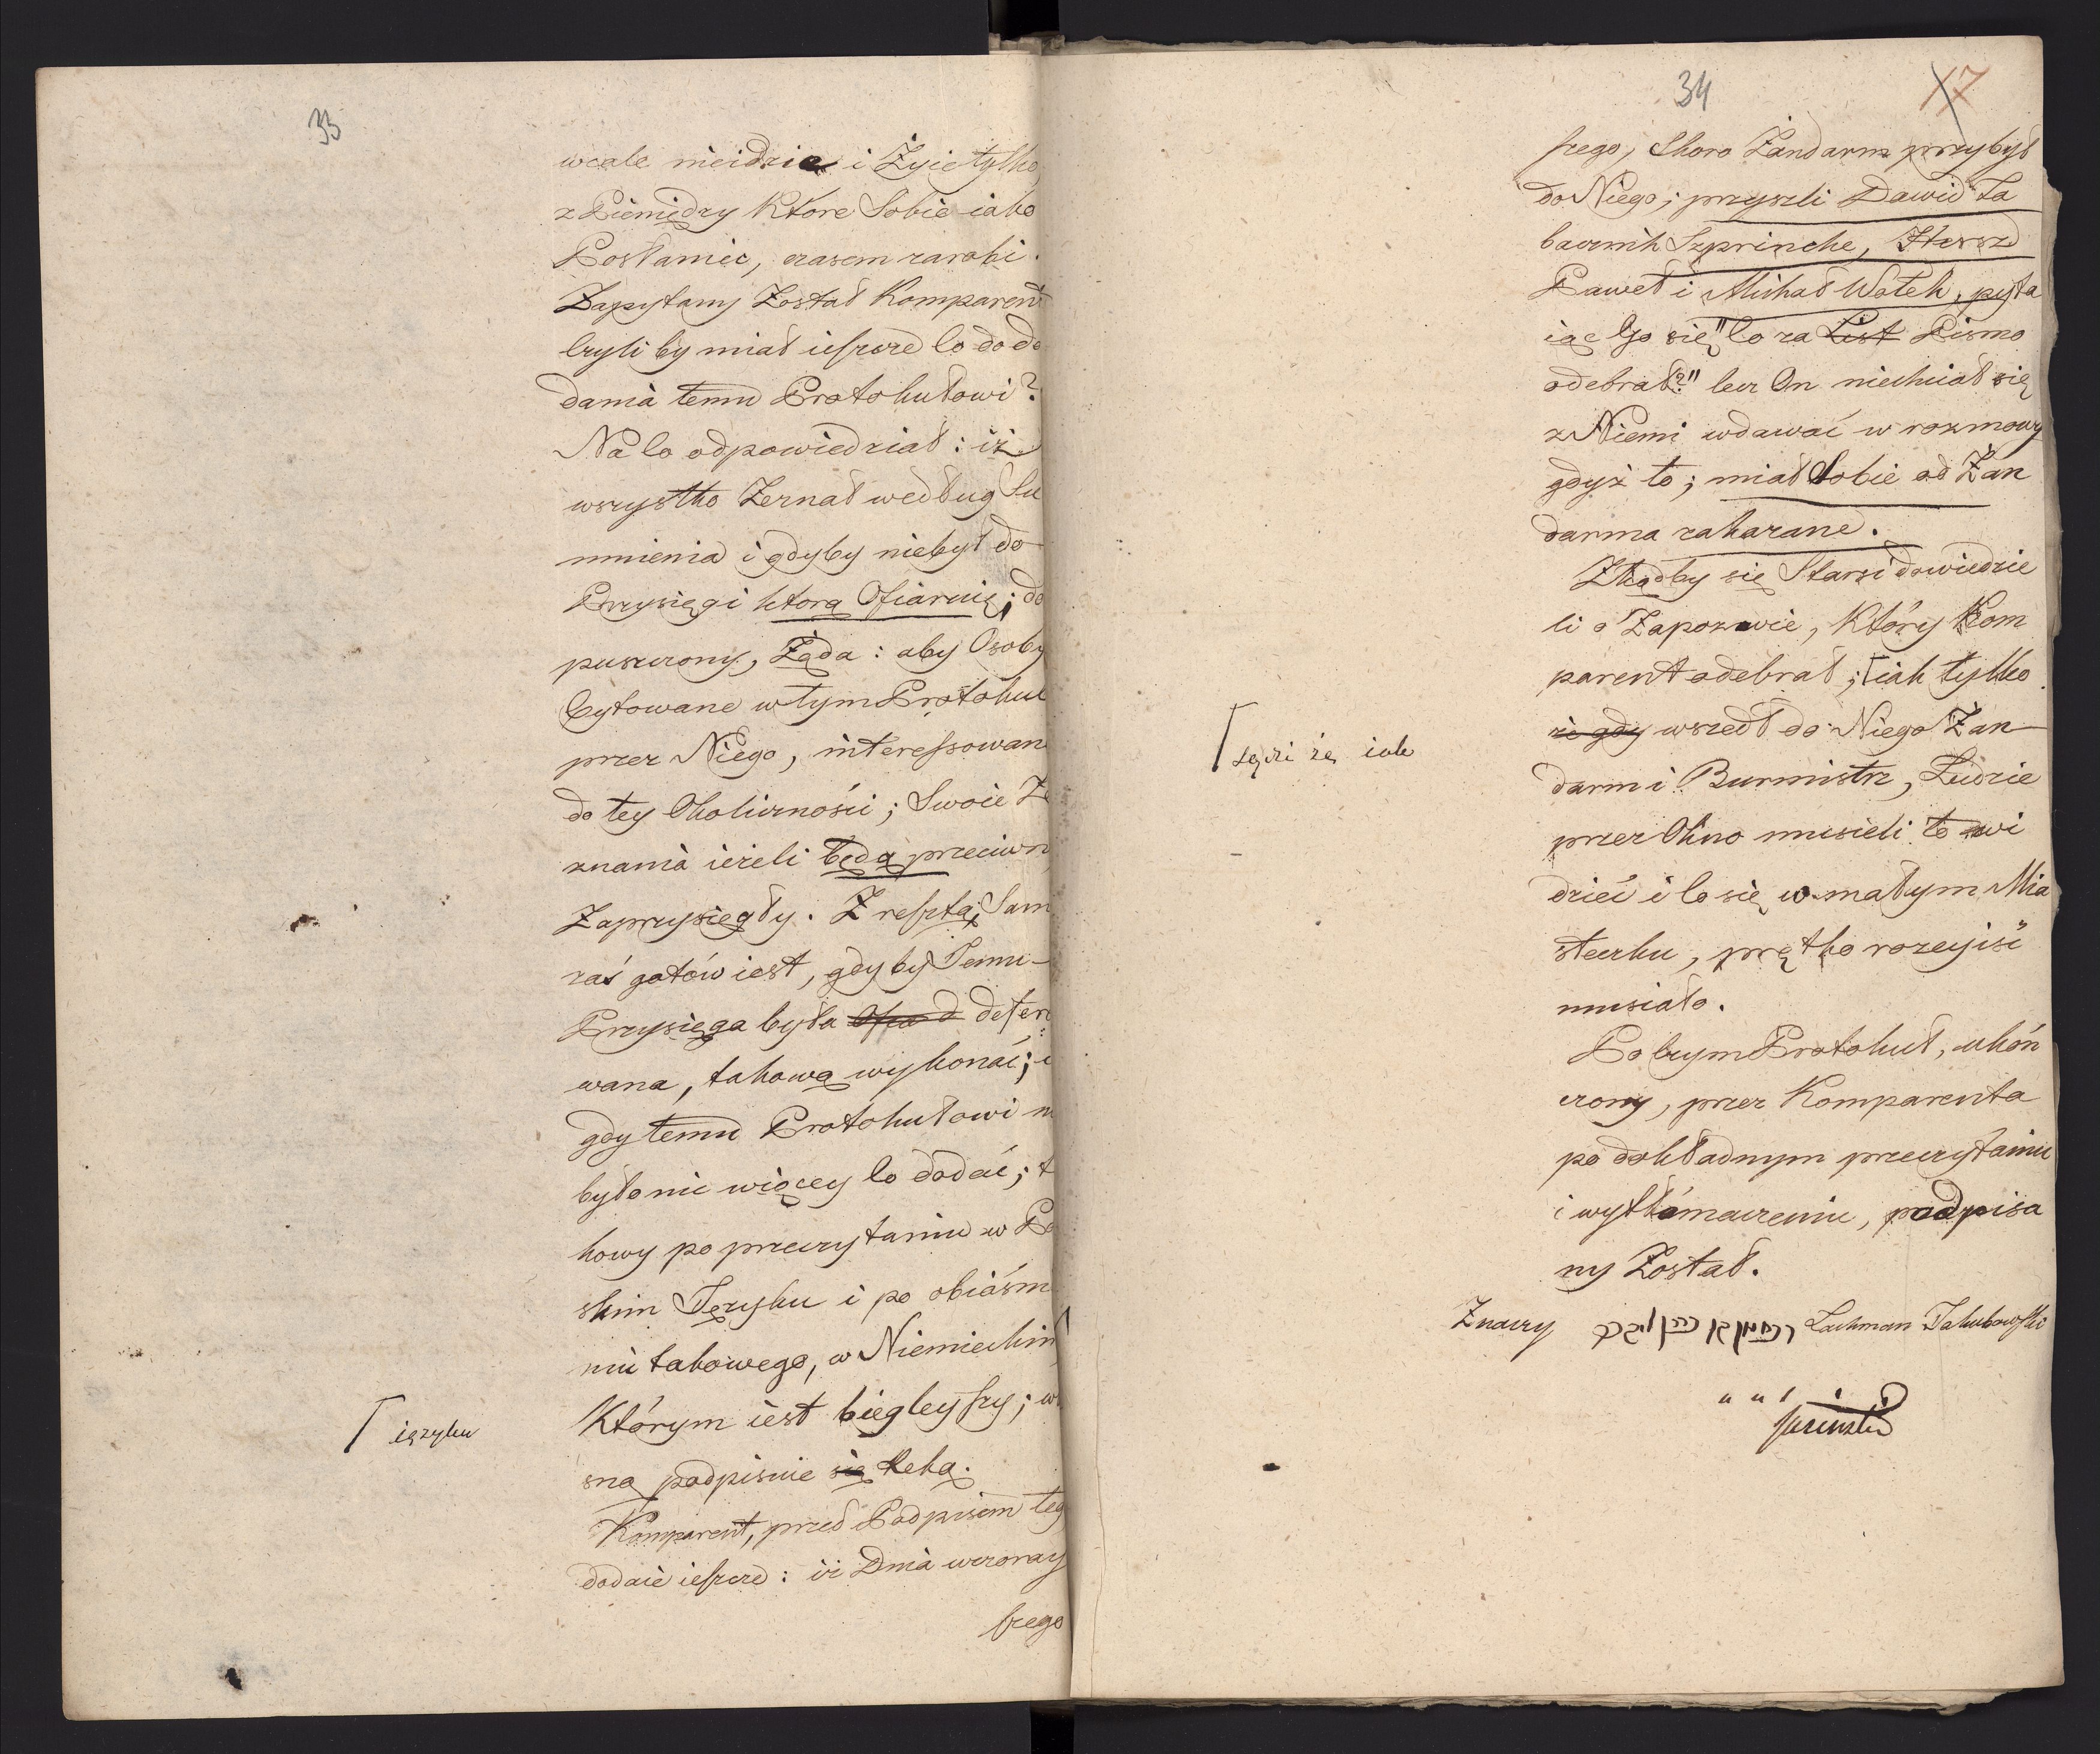 33
wcale nieidzie i Żyie tylko
z Pieniędzy Które Sobie iako
Posłaniec, czasem zarobi.
Zapytany Został Komparent
czyli by miał ieszcze co do do
dania temu Protokułowi?
Na co odpowiedział: iż
wszystko Zeznał według Su
mnienia i gdyby niebył do
Przysięgi którą Ofiaruię; do
puszczony, Żąda: aby Osoby
Cytowane w tym Protokul
przez Niego, interessowan
do tey Okoliczności; Swoie Ze
znania ieżeli będą przeciwn
Zaprzysięgły. Z resztą Sam
zaś gotów iest, gdyby Jemu
Przysięga była Ofia d defero
wana, takową wykonać; i
gdy temu Protokułowi n
było nic więcey co dodać; t
kowy po przeczytaniu w Po
skim Języku i po obiaśni
niu takowego, w Niemieckim
⌈ ięzyku
Którym iest bieglejszy; w
sną podpisuie się Ręką.
Komparent, przed Podpisem teg
dodaie ieszcze: iż Dnia wczoray
szego
34 17
szego, Skoro Żandarm przybył
do Niego; przyszli Dawid Ta
bacznik Szprincke, Herszd
Paweł i Michał Wołek, pyta
iąc Go się "co za List Pismo
odebrał?" lecz On niechciał się
z Niemi wdawać w rozmowy
gdyż to; miał Sobie od Żan
darma zakazane.
Zkądby się Starsi dowiedzie
li o Zapozwie, Który Kom
parent odebrał; ⌈iak tylko
⌈ sądzi że iak
że gdy wszedł do Niego Żan
darm i Burmistrz, Ludzie
przez Okno musieli to wi
dzieć i co się w małym Mia
steczku, prętko rozeyiść
musiało.
Po czym Protokuł, ukoń
czony, przez Komparenta
po dokładnym przeczytaniu
i wytłómaczeniu, podpisa
ny Został.
Znaczy Lachman Jakubowski